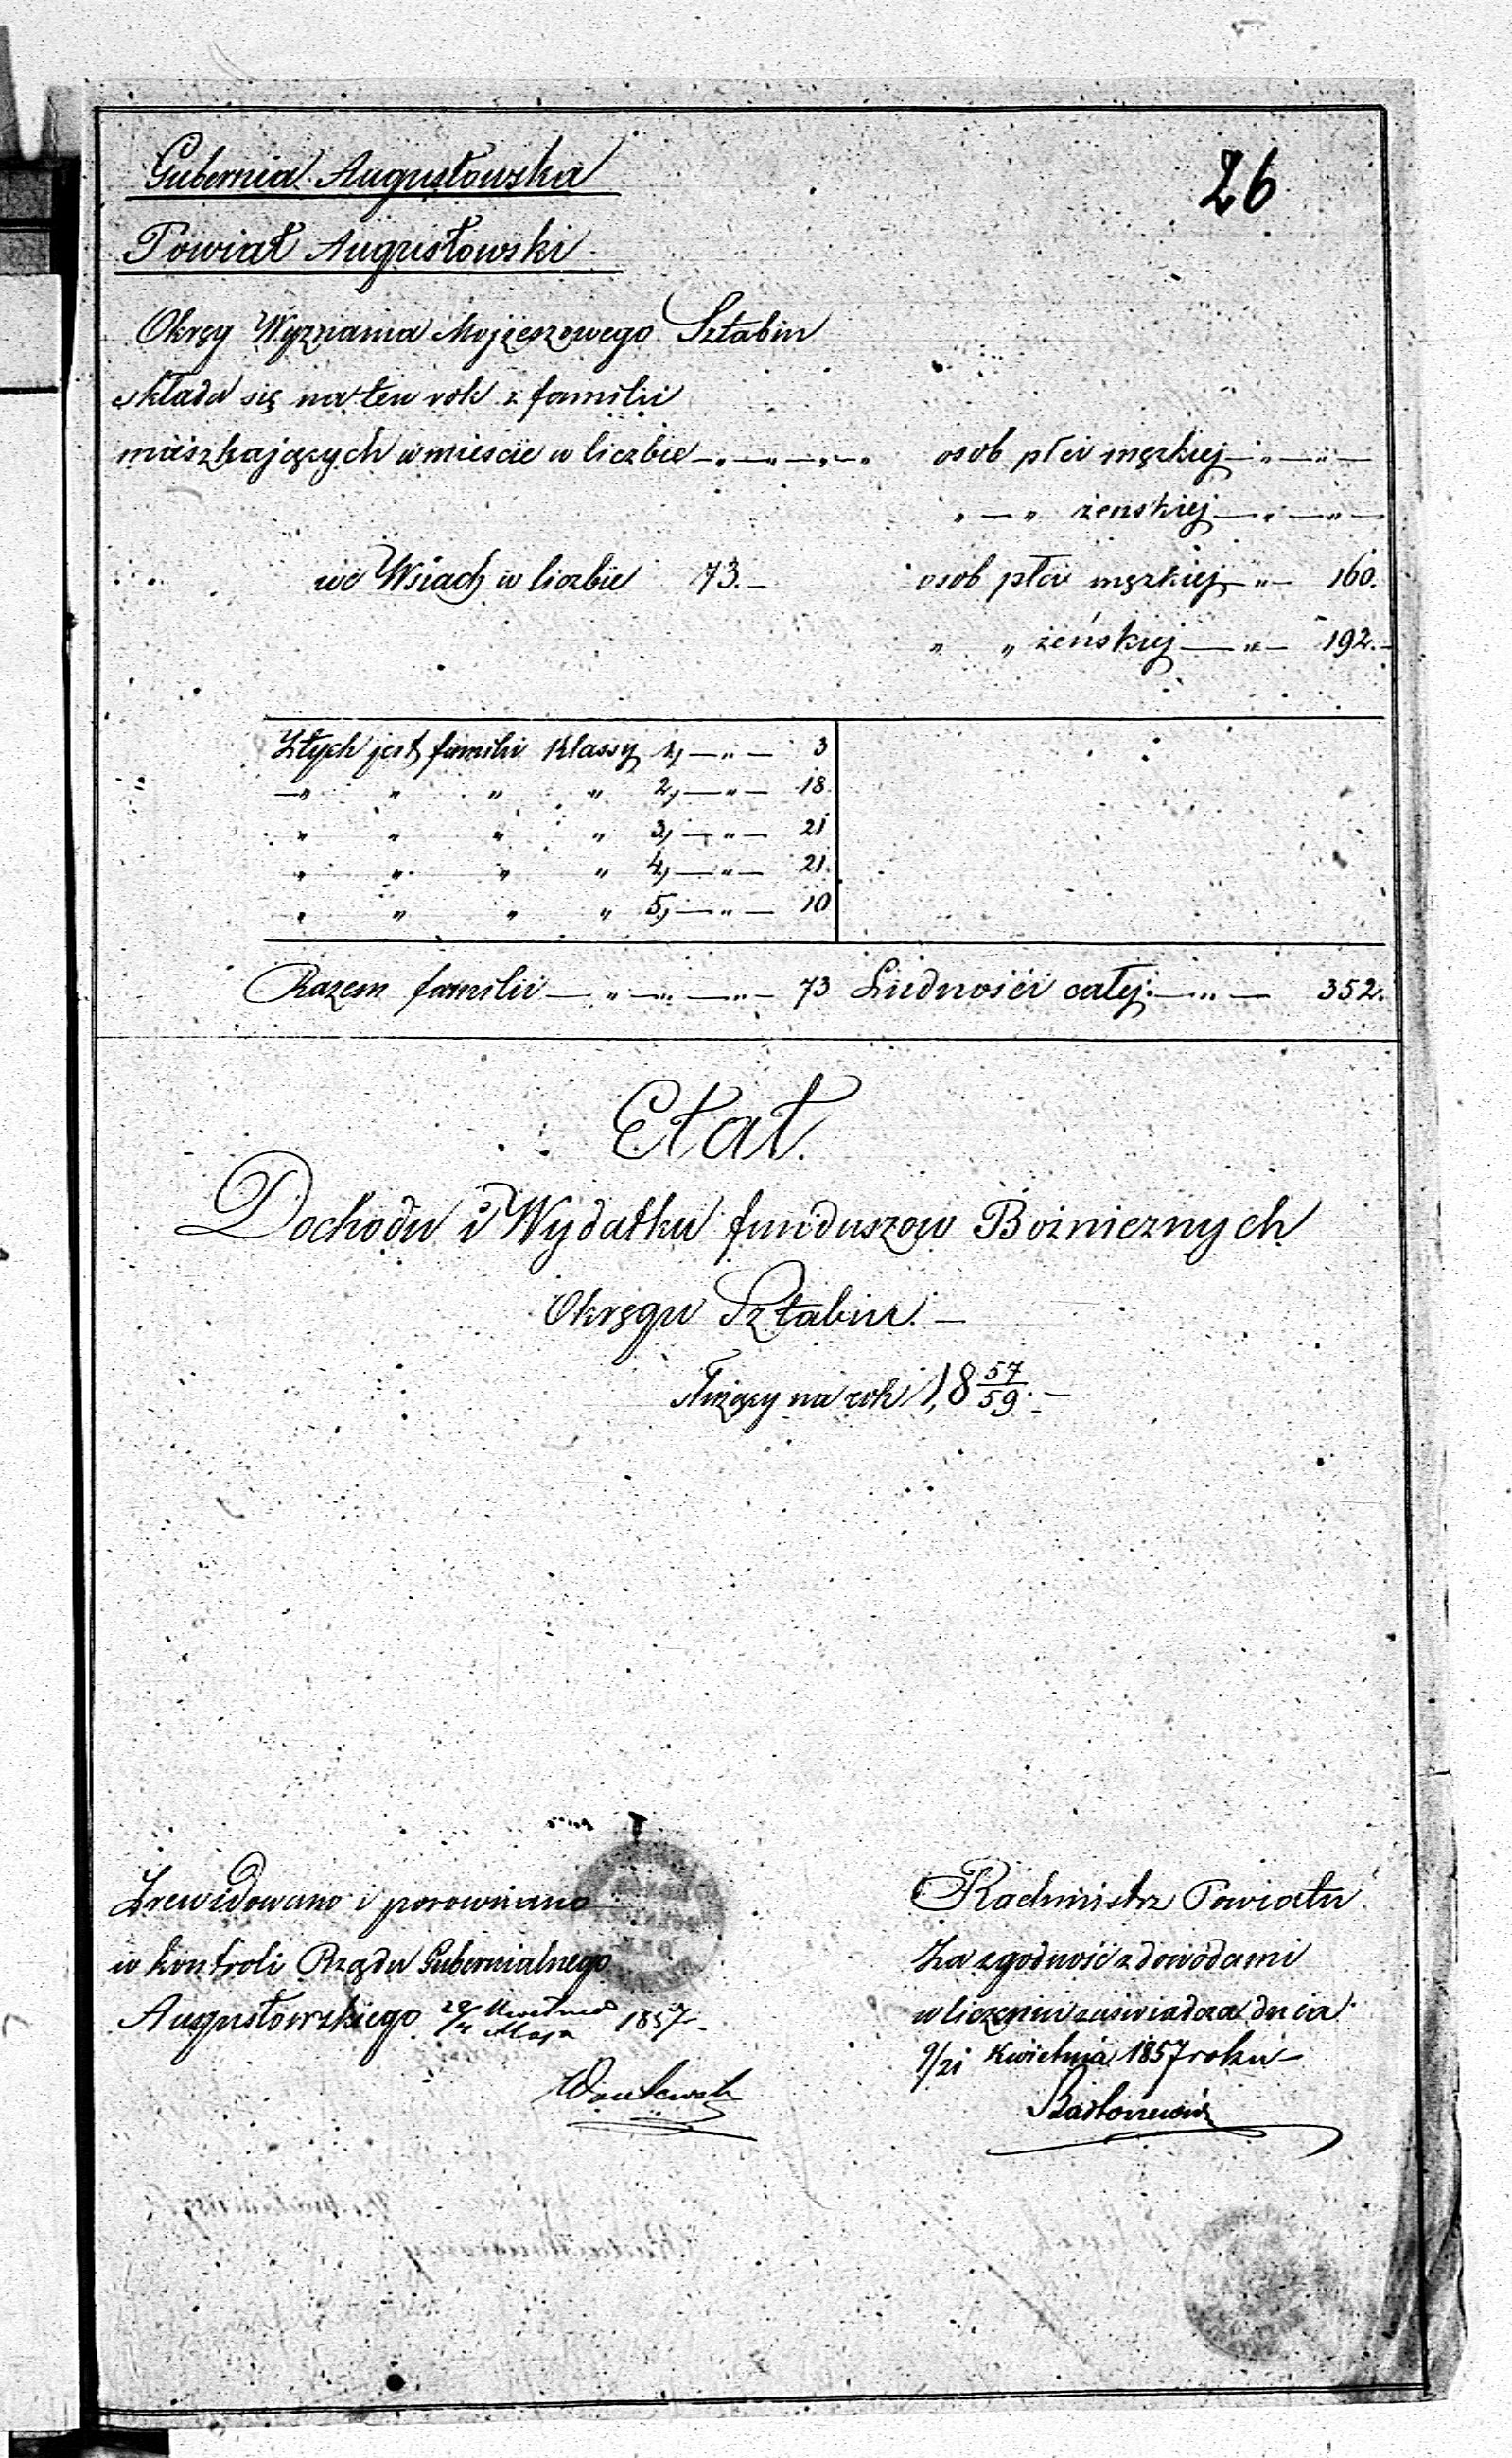 Gubernia Augustowska
26
Powiat Augustowski
Okręg Wyznania Mojżeszowego Sztabin
składa się na ten rok z familii
mieszkających w mieście w liczbie —„—„—„—„ osob płci męzkiej —„—„—
„—„ żenskiej —„—„—
we Wsiach w liczbie 73.— osob płci męzkiej —„— 160.
„ „ żeńskiej —„— 192.—
Z tych jest familii Klassy 1, —„— 3
—„ „ „ „ 2, —„— 18.
„ „ „ „ 3, —„— 21
„ „ „ „ 4, —„— 21.
„ „ „ „ 5, —„— 10
Razem familii —„—„—„— 73 Ludności całej: —„— 352.
Etat.
Dochodu i Wydatku funduszow Bożnicznych
Okręgu Sztabin. —
służący na rok 18 57/59. —
Zrewidowano i porownano
w kontroli Rządu Gubernialnego
Augustowskiego Kwietnia Maja 1857 —
Rachmistrz Powiatu
Za zgodność z dowodami
w liczeniu zaświadcza dnia
9/21 Kwietnia 1857 roku —